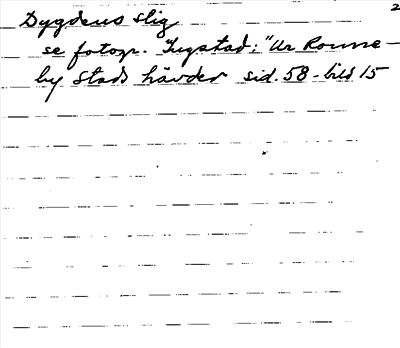 2
Dygdens stig
se fotogr. Tugstad: "Ur Ronne-
by stads hävder sid. 58 - bild 15